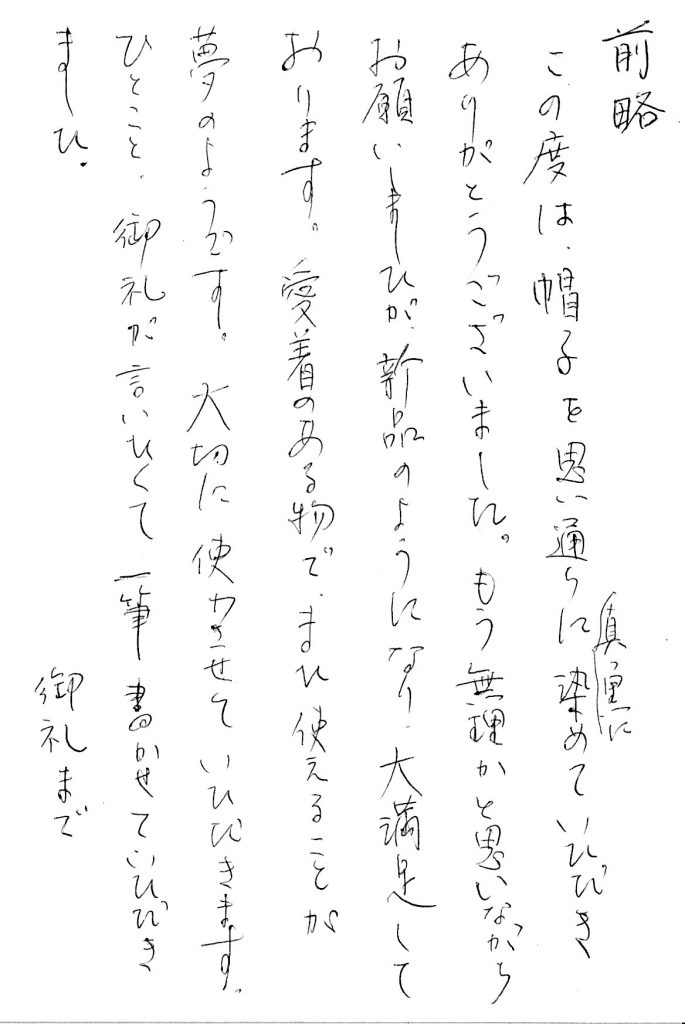 前略
この度は、帽子を思い通りに真黒に染めていただき
ありがとうございました。もう無理かと思いながら
お願いしましたが、新品のようになり、大満足して
おります。愛着のある物で、また使えることが
夢のようです。大切に使わさせていただきます。
ひとこと、御礼が言いたくて一筆書かせていただき
ました。
御礼まで